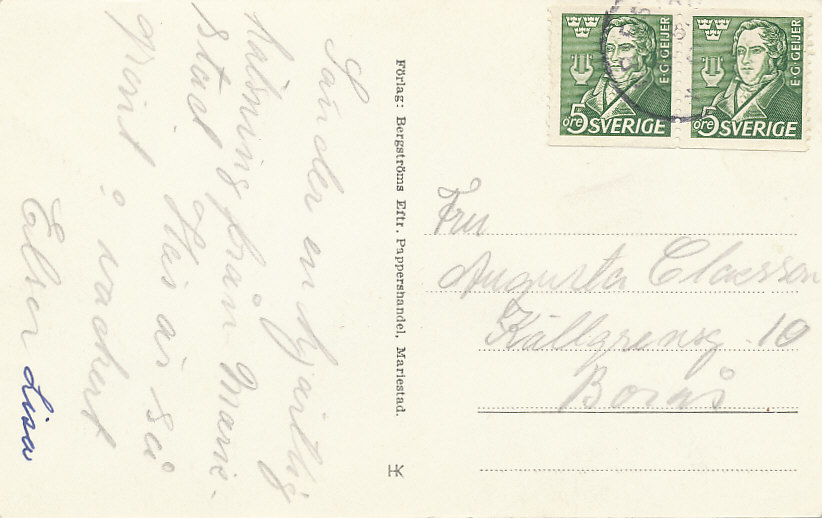 Sänder en hjärtlig
hälsning från Marie-
stad Här är så
grönt o vackert
Elsa Lisa
Förlag: Bergströms Eftr. Pappershandel, Mariestad.
HK
E·G·GEIJER
5 öre SVERIGE
E·G·GEIJER
5 öre SVERIGE
Fru
Augusta Claesson
Källgrensg. 10
Borås